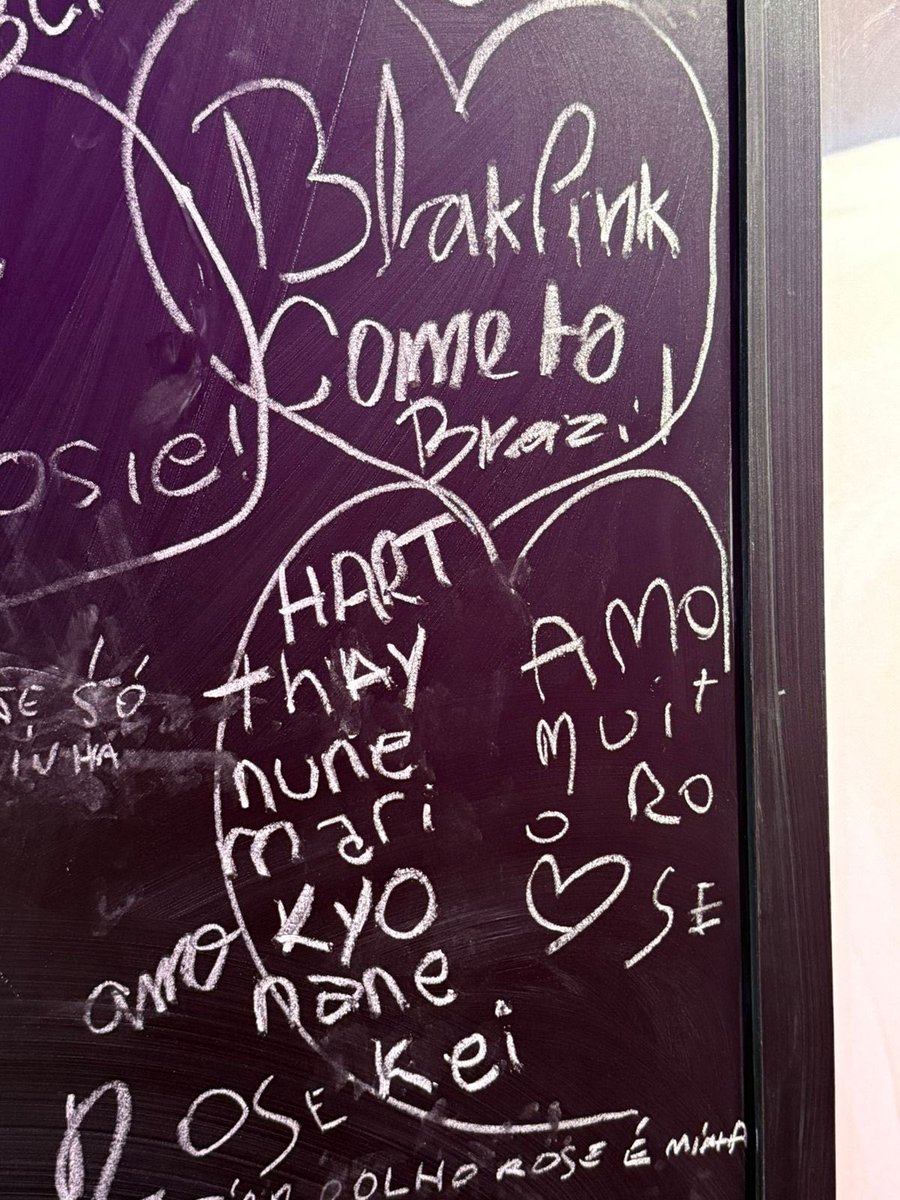 BlakPink
Come to
Brazil
osie!
HART
thAY
nune
mari
KYO
nane
Kei
AMO
MUit
O RO
SE
SE SÓ
amo
ROSE
OLHO ROSE É MINHA